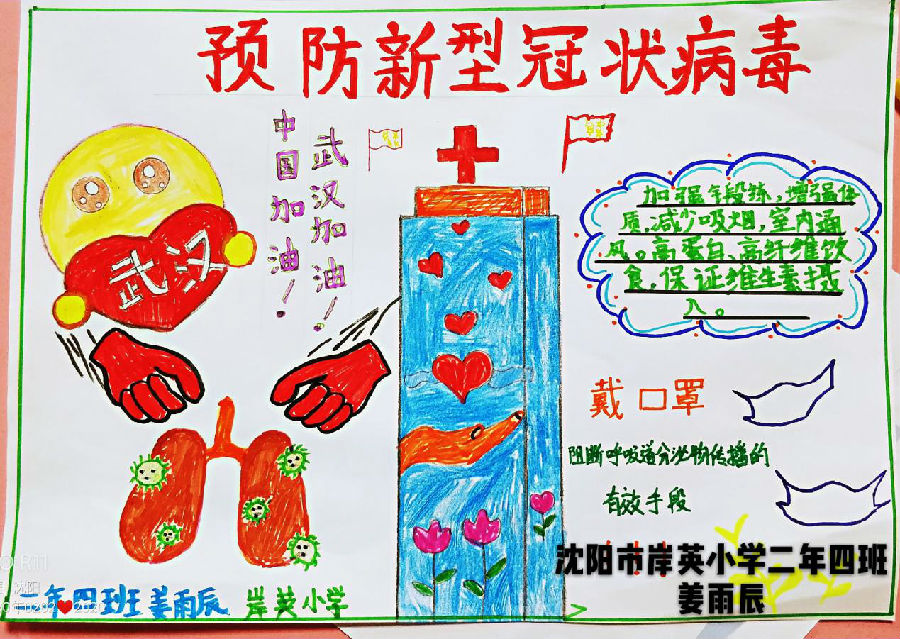 预防新型冠状病毒
中国加油！
武汉加油！
武汉
加强锻炼，增强体
质，减少吸烟，室内通
风。高蛋白、高纤维饮
食，保证维生素摄
入。
戴口罩
阻断呼吸道分泌物传播的
有效手段
沈阳市岸英小学二年四班
姜雨辰
二年四班姜雨辰 岸英小学